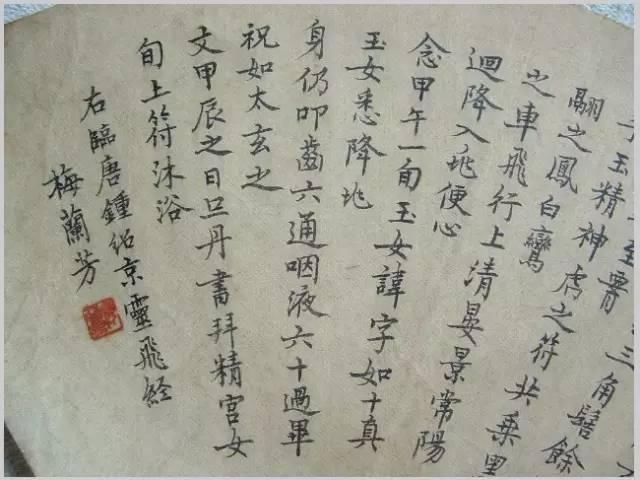 三角髻餘
玉精神虎之符共乘黑
翮之鳳白鸞
之車飛行上清晏景常陽
迴降入兆便心
念甲午一旬玉女諱字如十真
玉女悉降兆
身仍叩齒六通咽液六十過畢
祝如太玄之
文甲辰之日旦丹書拜精宮女
旬上符沐浴
右臨唐鍾紹京靈飛経
梅蘭芳